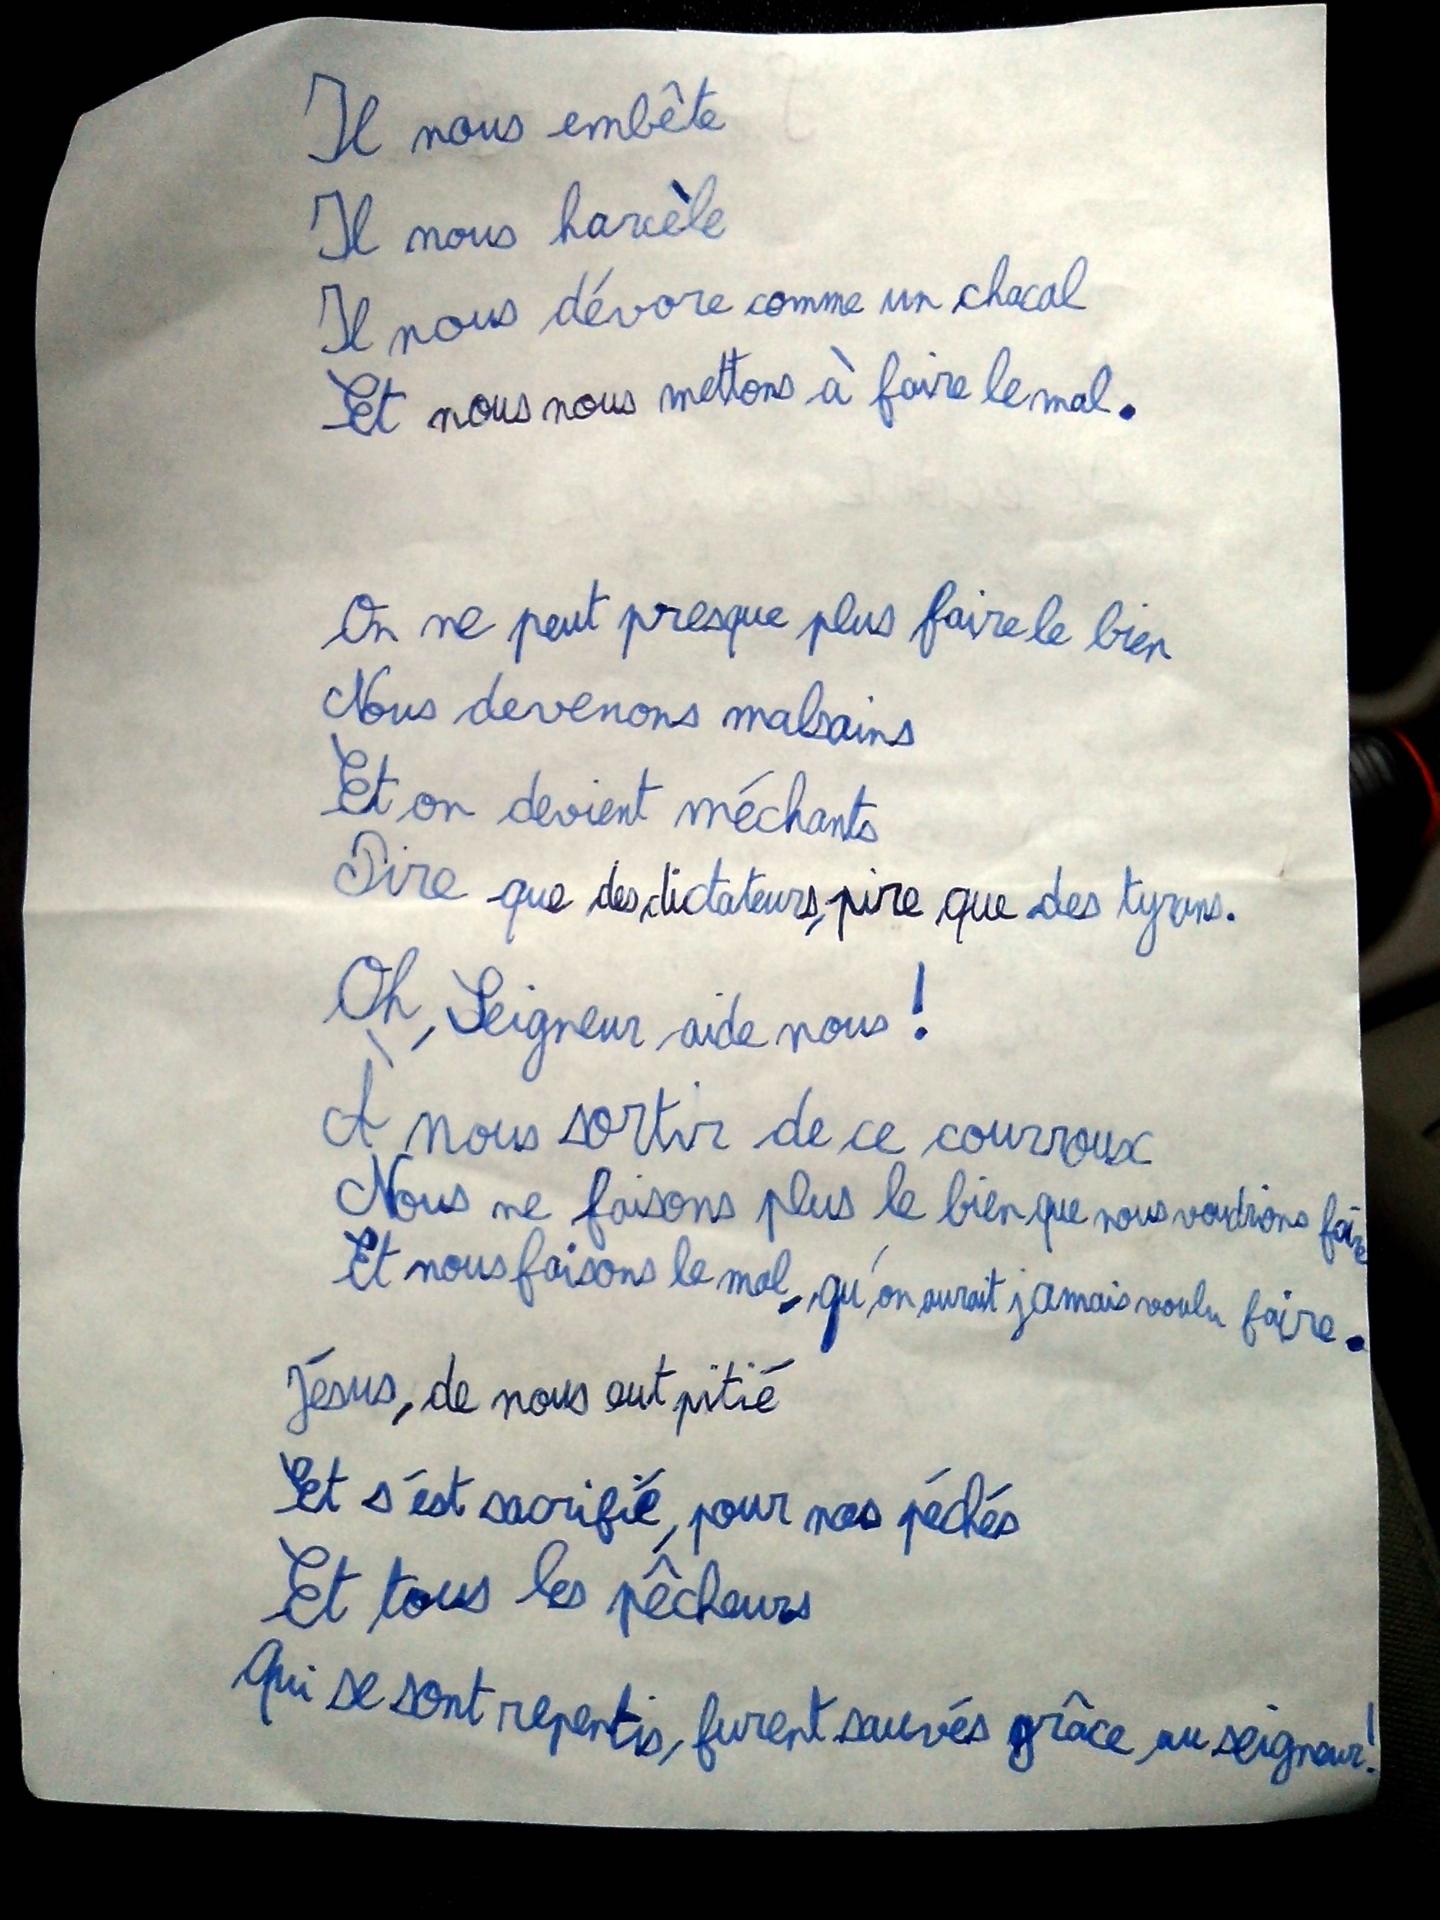 Il nous embête
Il nous harcèle
Il nous dévore comme un chacal
Et nous nous mettons à faire le mal.
On ne peut presque plus faire le bien
Nous devenons malsains
Et on devient méchants
Pire que des dictateurs, pire que des tyrans.
Oh, Seigneur aide nous !
À nous sortir de ce courroux
Nous ne faisons plus le bien que nous voudrions faire
Et nous faisons le mal, qu'on aurait jamais voulu faire.
Jésus, de nous eut pitié
Et s'est sacrifié, pour nos péchés
Et tous les pêcheurs
Qui se sont repentis, furent sauvés grâce au seigneur!